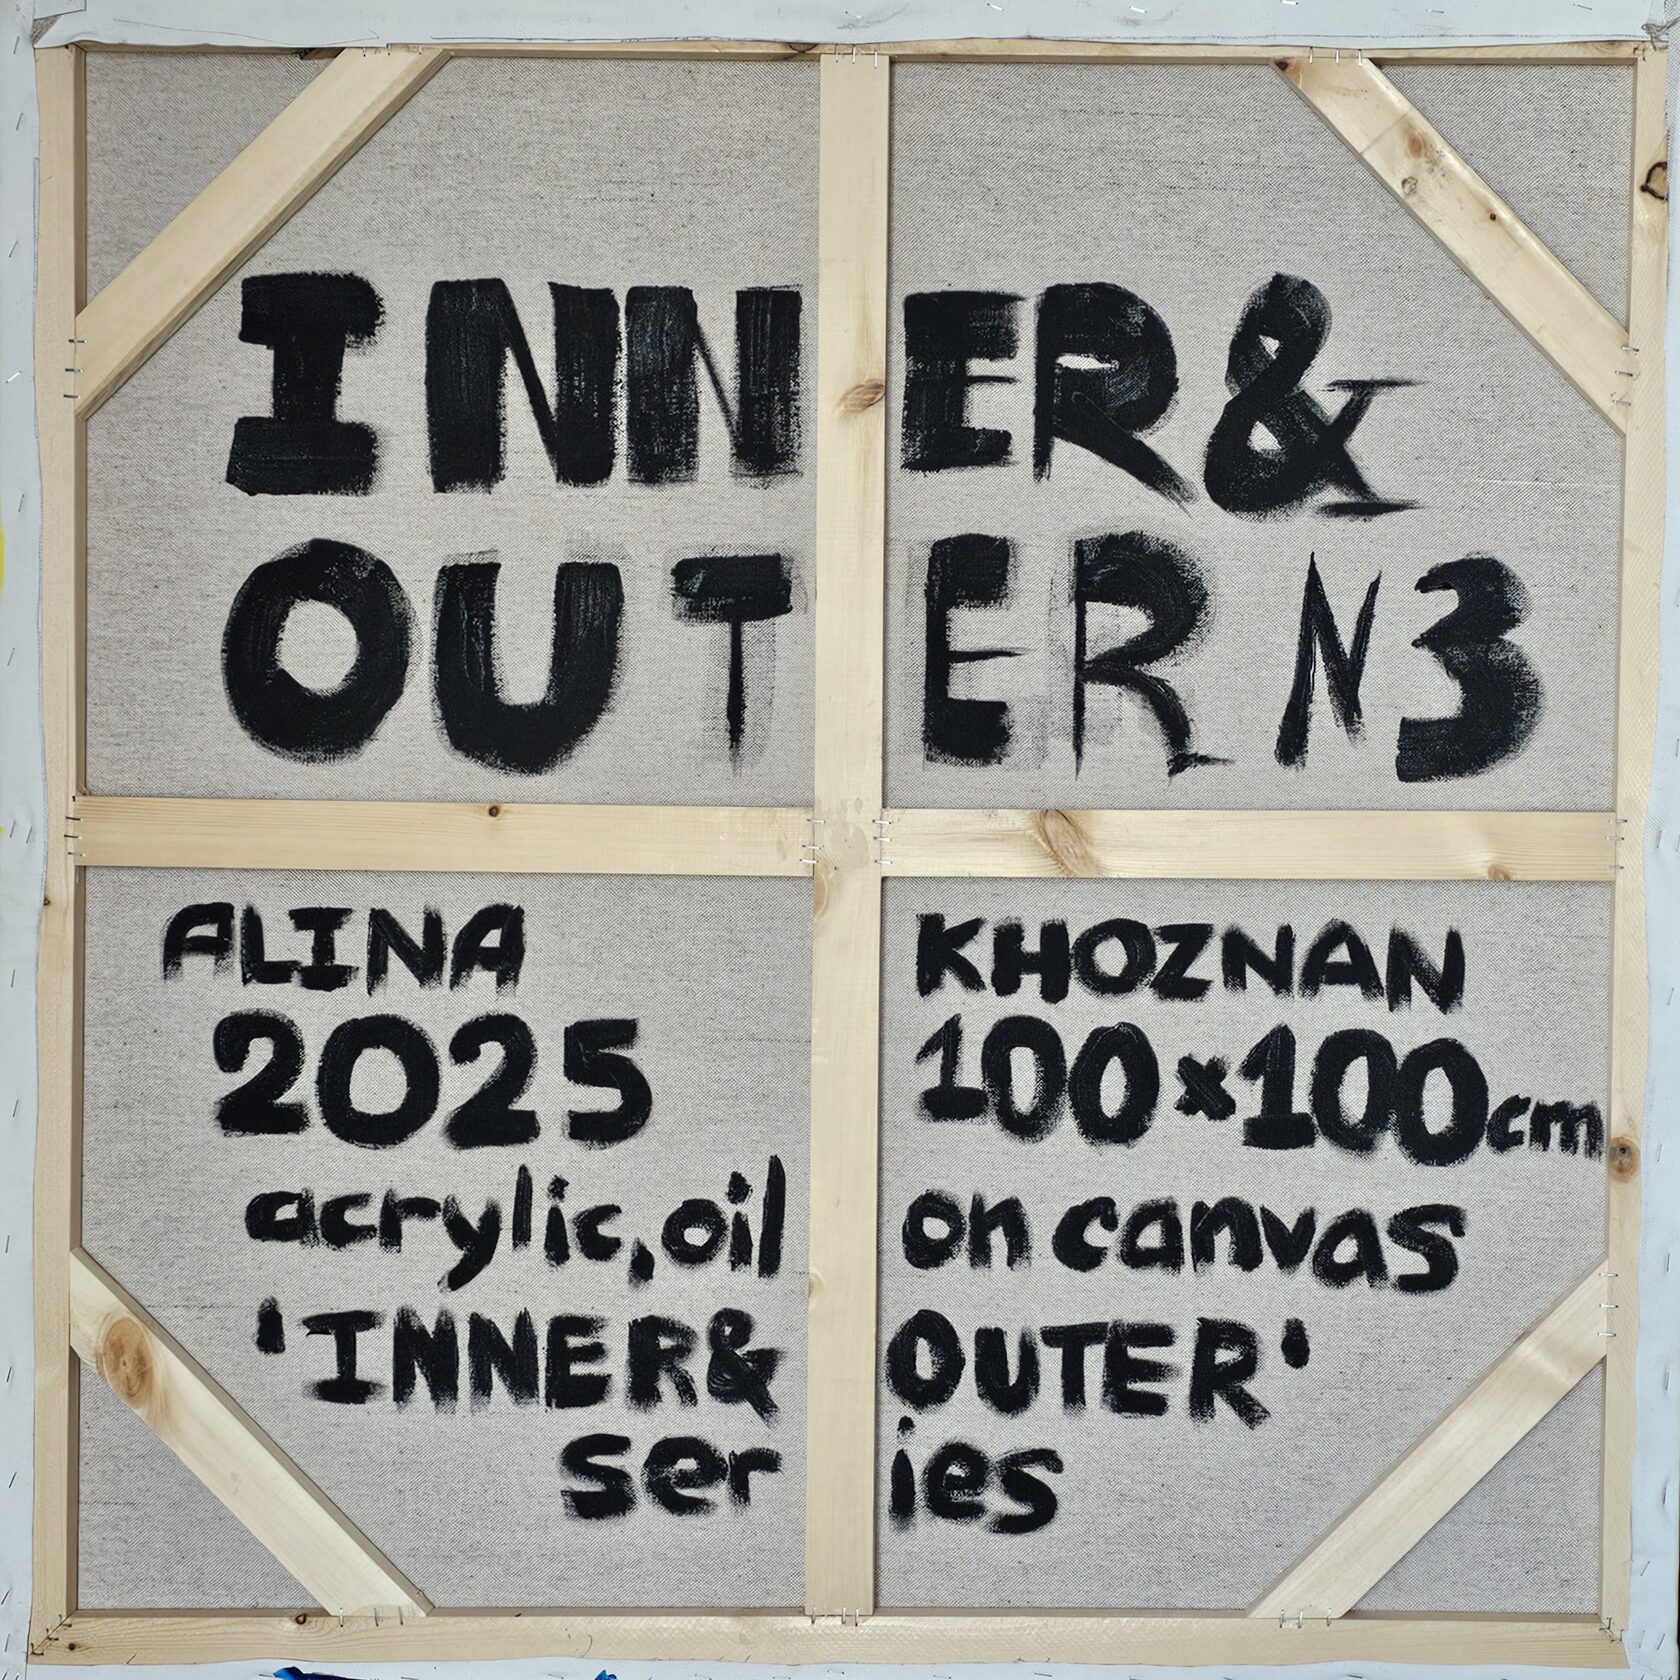 INNER &
OUTER N3
ALINA KHOZNAN
2025 100×100cm
acrylic, oil on canvas
'INNER & OUTER'
series